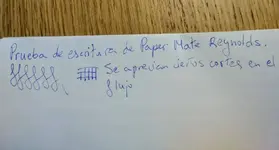 Prueba de escritura de Paper Mate Reynolds.
Se aprecian ciertos cortes en el
flujo